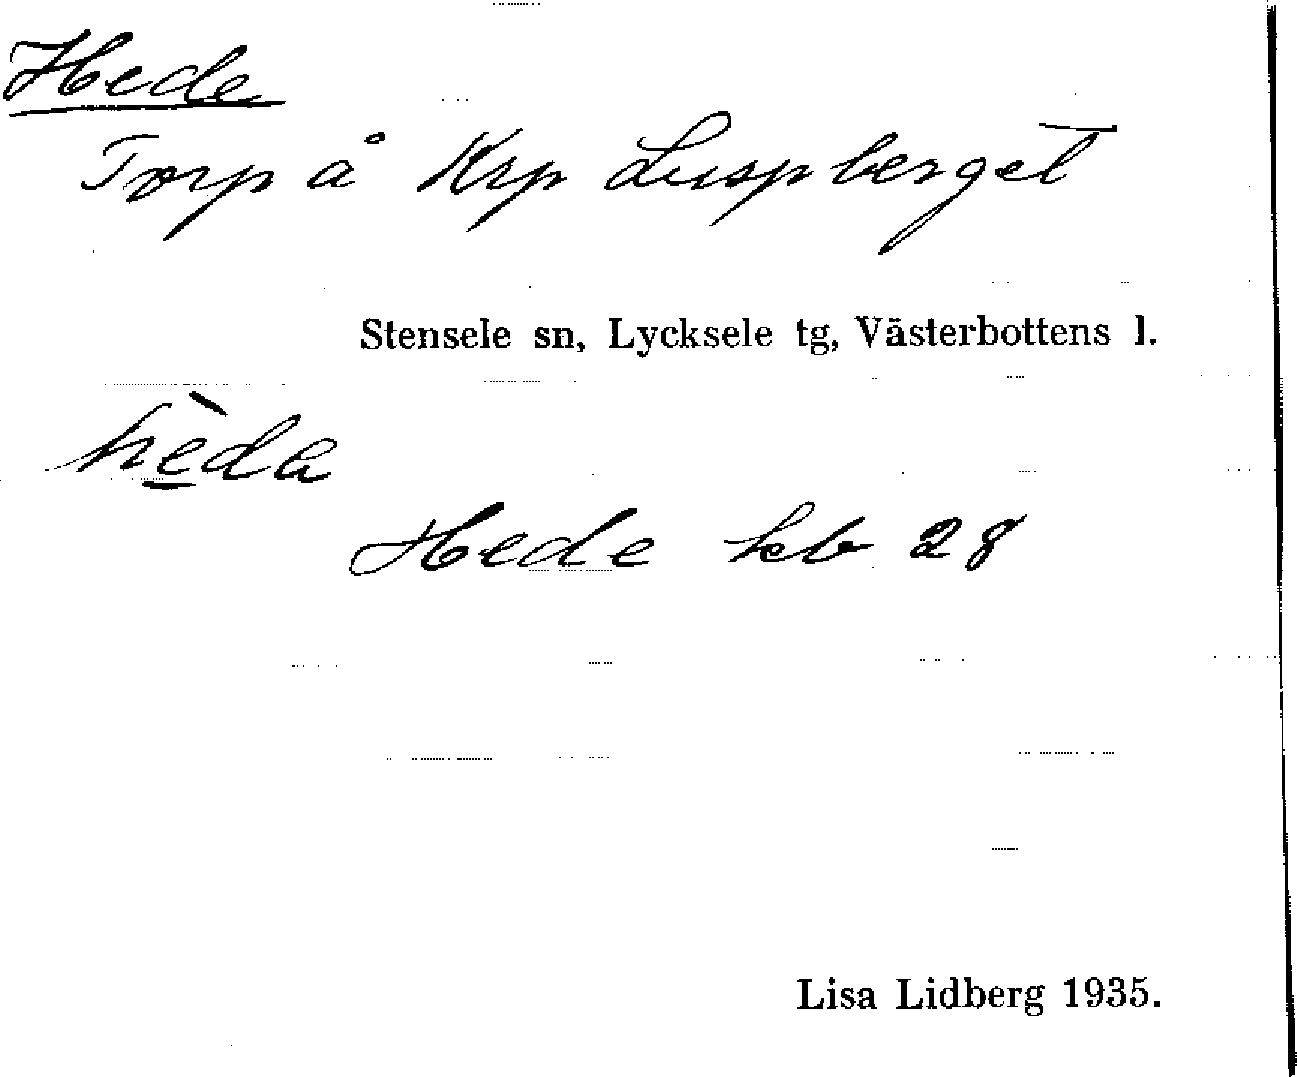 Hede
Torp å Krp Luspberget
Stensele sn, Lycksele tg, Västerbottens l.
hèda
Hede kb 28
Lisa Lidberg 1935.